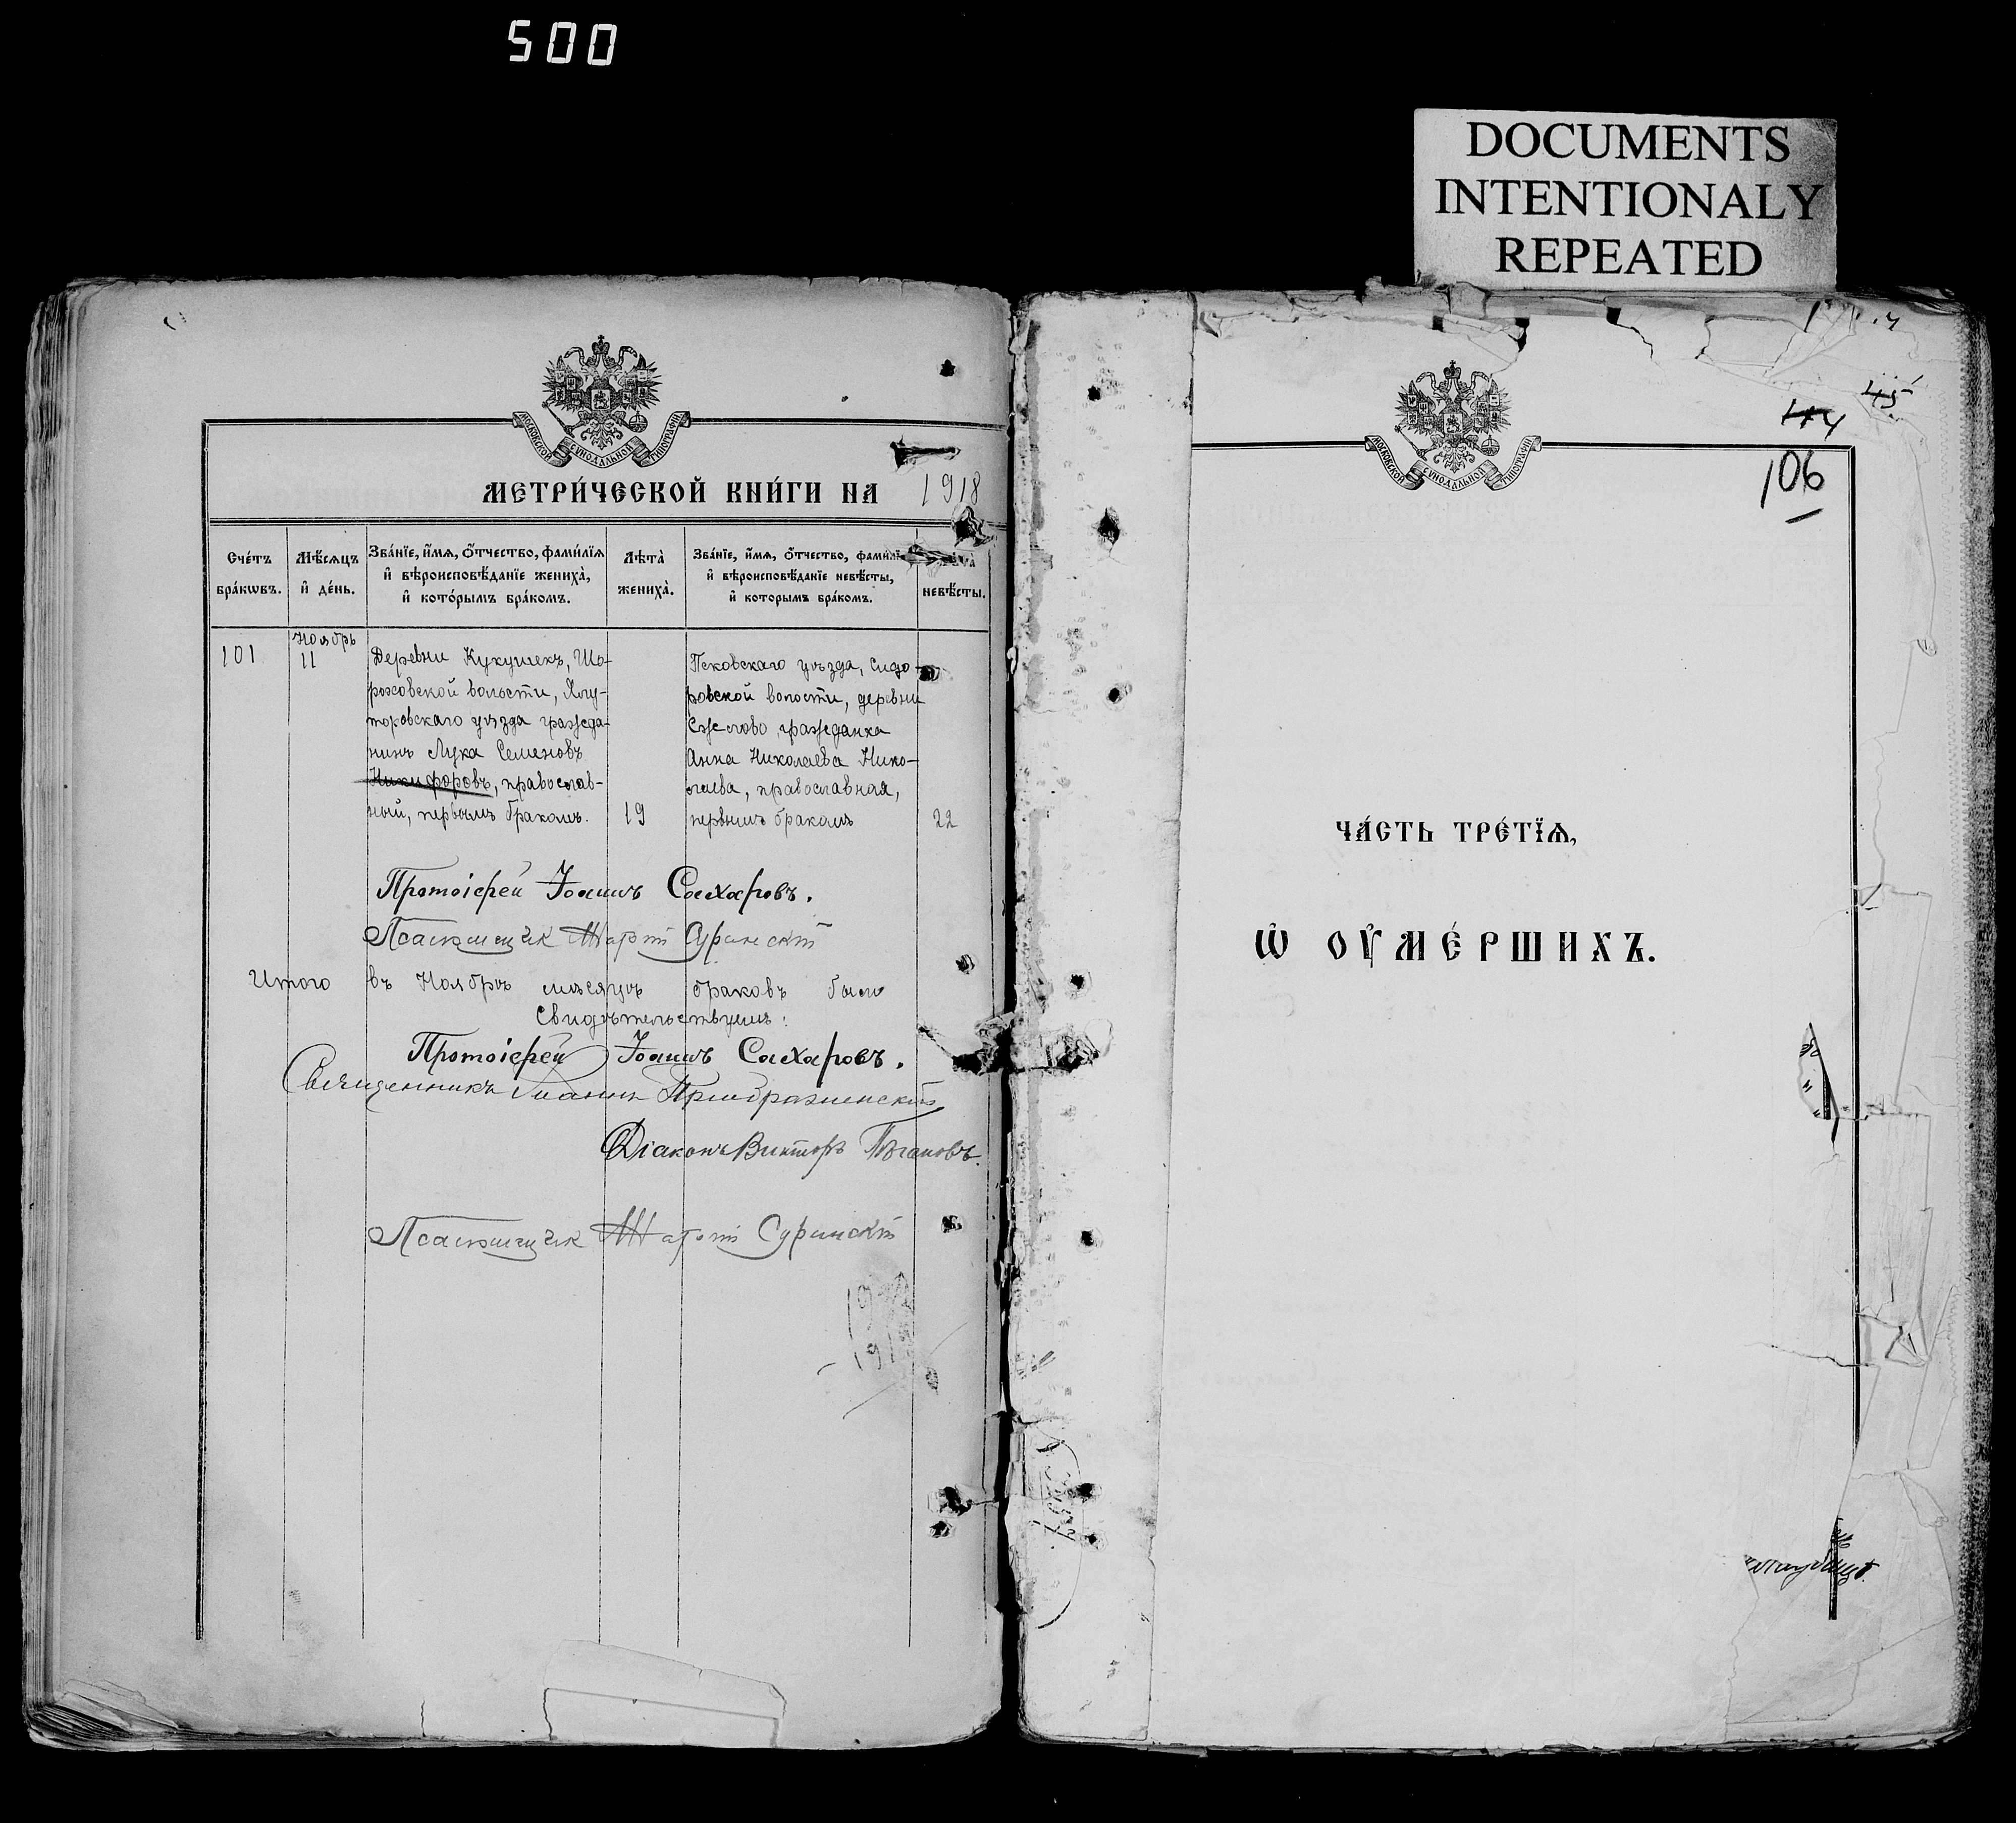 500
DOCUMENTS
INTENTIONALY
REPEATED
МОСКОВСКОЙ СѴНОДАЛЬНОЙ ТИПОГРАФІИ
МЕТРИ́ЧЕСКОЙ КНИ́ГИ НА 1918
Сче́тъ бра́кѡвъ.
Мѣ́сѧцъ и҆ де́нь.
Зва́нїе, и҆́мѧ, ѻ҆́тчество, фами́лїѧ и҆ вѣроисповѣ́данїе жениха̀, и҆ кото́рымъ бра́комъ.
Лѣта̀ жениха̀.
Зва́нїе, и҆́мѧ, ѻ҆́тчество, фами́лї и҆ вѣроисповѣ́данїе невѣ́сты, и҆ которымъ бра́комъ.
невѣ́сты.
101
Ноябрь
11
Деревни Кукушекъ, Шо-
роховской волости, Ялу-
торовскаго уѣзда гражда-
нинъ Лука Семеновъ
Никифоровъ, православ-
ный, первымъ бракомъ.
19
Псковскаго уѣзда, Сидо-
ровской волости, деревни
гражданка
Анна Николаева Нико-
лаева, православная,
первымъ бракомъ
22
Протоіерей Іоаннъ Сахаровъ.
Псаломщик
Итого въ Ноябрѣ мѣсяцѣ браковъ было
Свидѣтельствуемъ:
Протоіерей Іоаннъ Сахаровъ.
Священникъ Іоаннъ Преображенскій
Діаконъ Викторъ
Псаломщик
МОСКОВСКОЙ СѴНОДАЛЬНОЙ ТИПОГРАФІИ
45
144
106
ЧА́СТЬ ТРЕ́ТЇѦ,
Ѡ҆ ОУ҆МЕ́РШИХЪ.